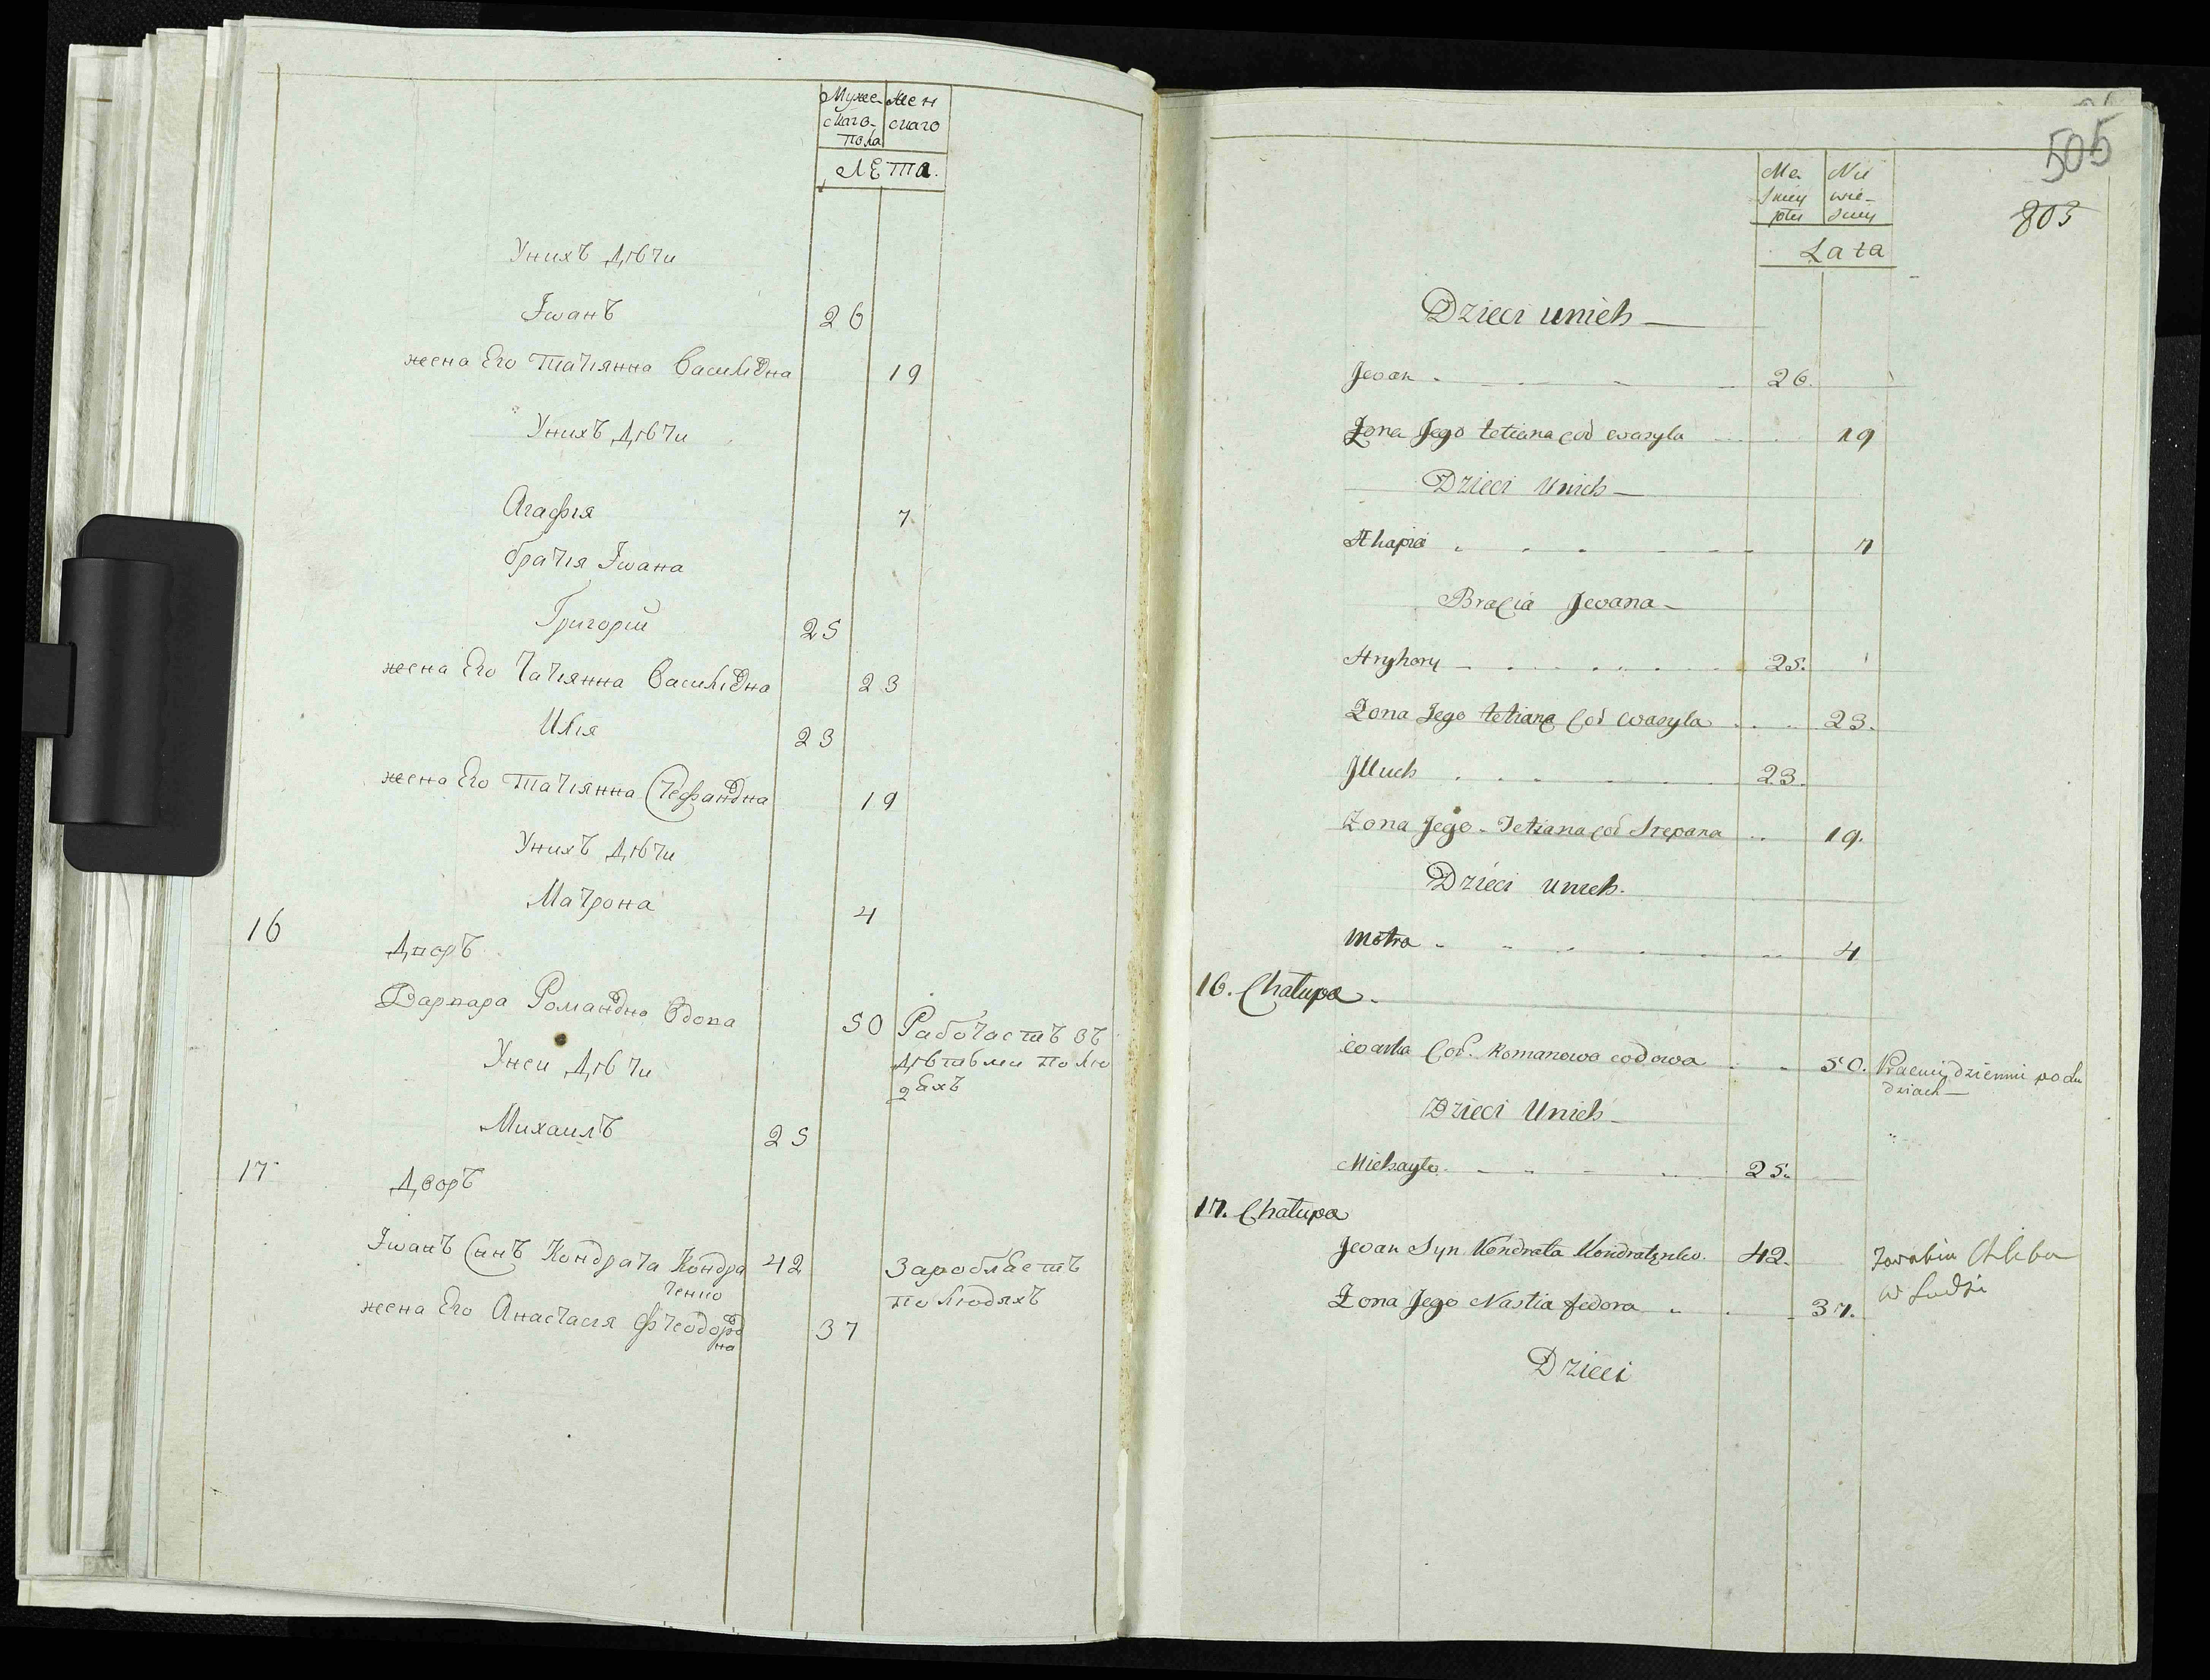 Мужескаго пола
Женскаго
Лета.
Унихъ дѣти
Іванъ 26
жена Его Татіянна Василівна 19
Унихъ дѣти
Агафія 7
братія Івана
Григорій 25
жена Его Татіянна Василівна 23
Илія 23
жена Его Татіянна Стефанівна 19
Унихъ дѣти
Матрона 4
16 Дворъ
Варвара Романівна вдова 50 Работаетъ зъ
дѣтьми по лю
дяхъ
Унеи дѣти
Михаилъ 25
17 Дворъ
Іванъ Синъ Кондрата Кондра 42 Заробляетъ
тенко по людяхъ
жена Его Анастасія Феодоров 37
на
505
803
Męskiey płci
Niewieskiey
Lata
Dzieci unich
Jwan 26.
Żona Jego tetiana cod wasyla 19
Dzieci Unich
Ahapia 7
Bracia Jwana
Hryhory 25.
Żona Jego tetiana Cod wasyla 23.
Jlluch 23.
Żona Jego Tetiana cod Stepana 19.
Dzieci unich.
Motra 4
16. Chałupa
warka Cod. Romanowa wdowa 50. Pracuie dziennie po lu
dziach
Dzieci Unich
Michayło 25.
17. Chałupa
Jwan Syn Kondrata Kondratenko. 42. zarabia Chleba
w ludzi
Żona Jego Nastia fedora 37.
Dzieci